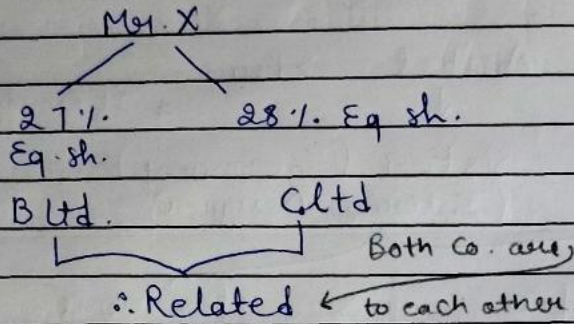 Mr. X
27%. 28%. Eq sh.
Eq. sh.
B Ltd. C Ltd
Both Co. are,
∴ Related ← to each other